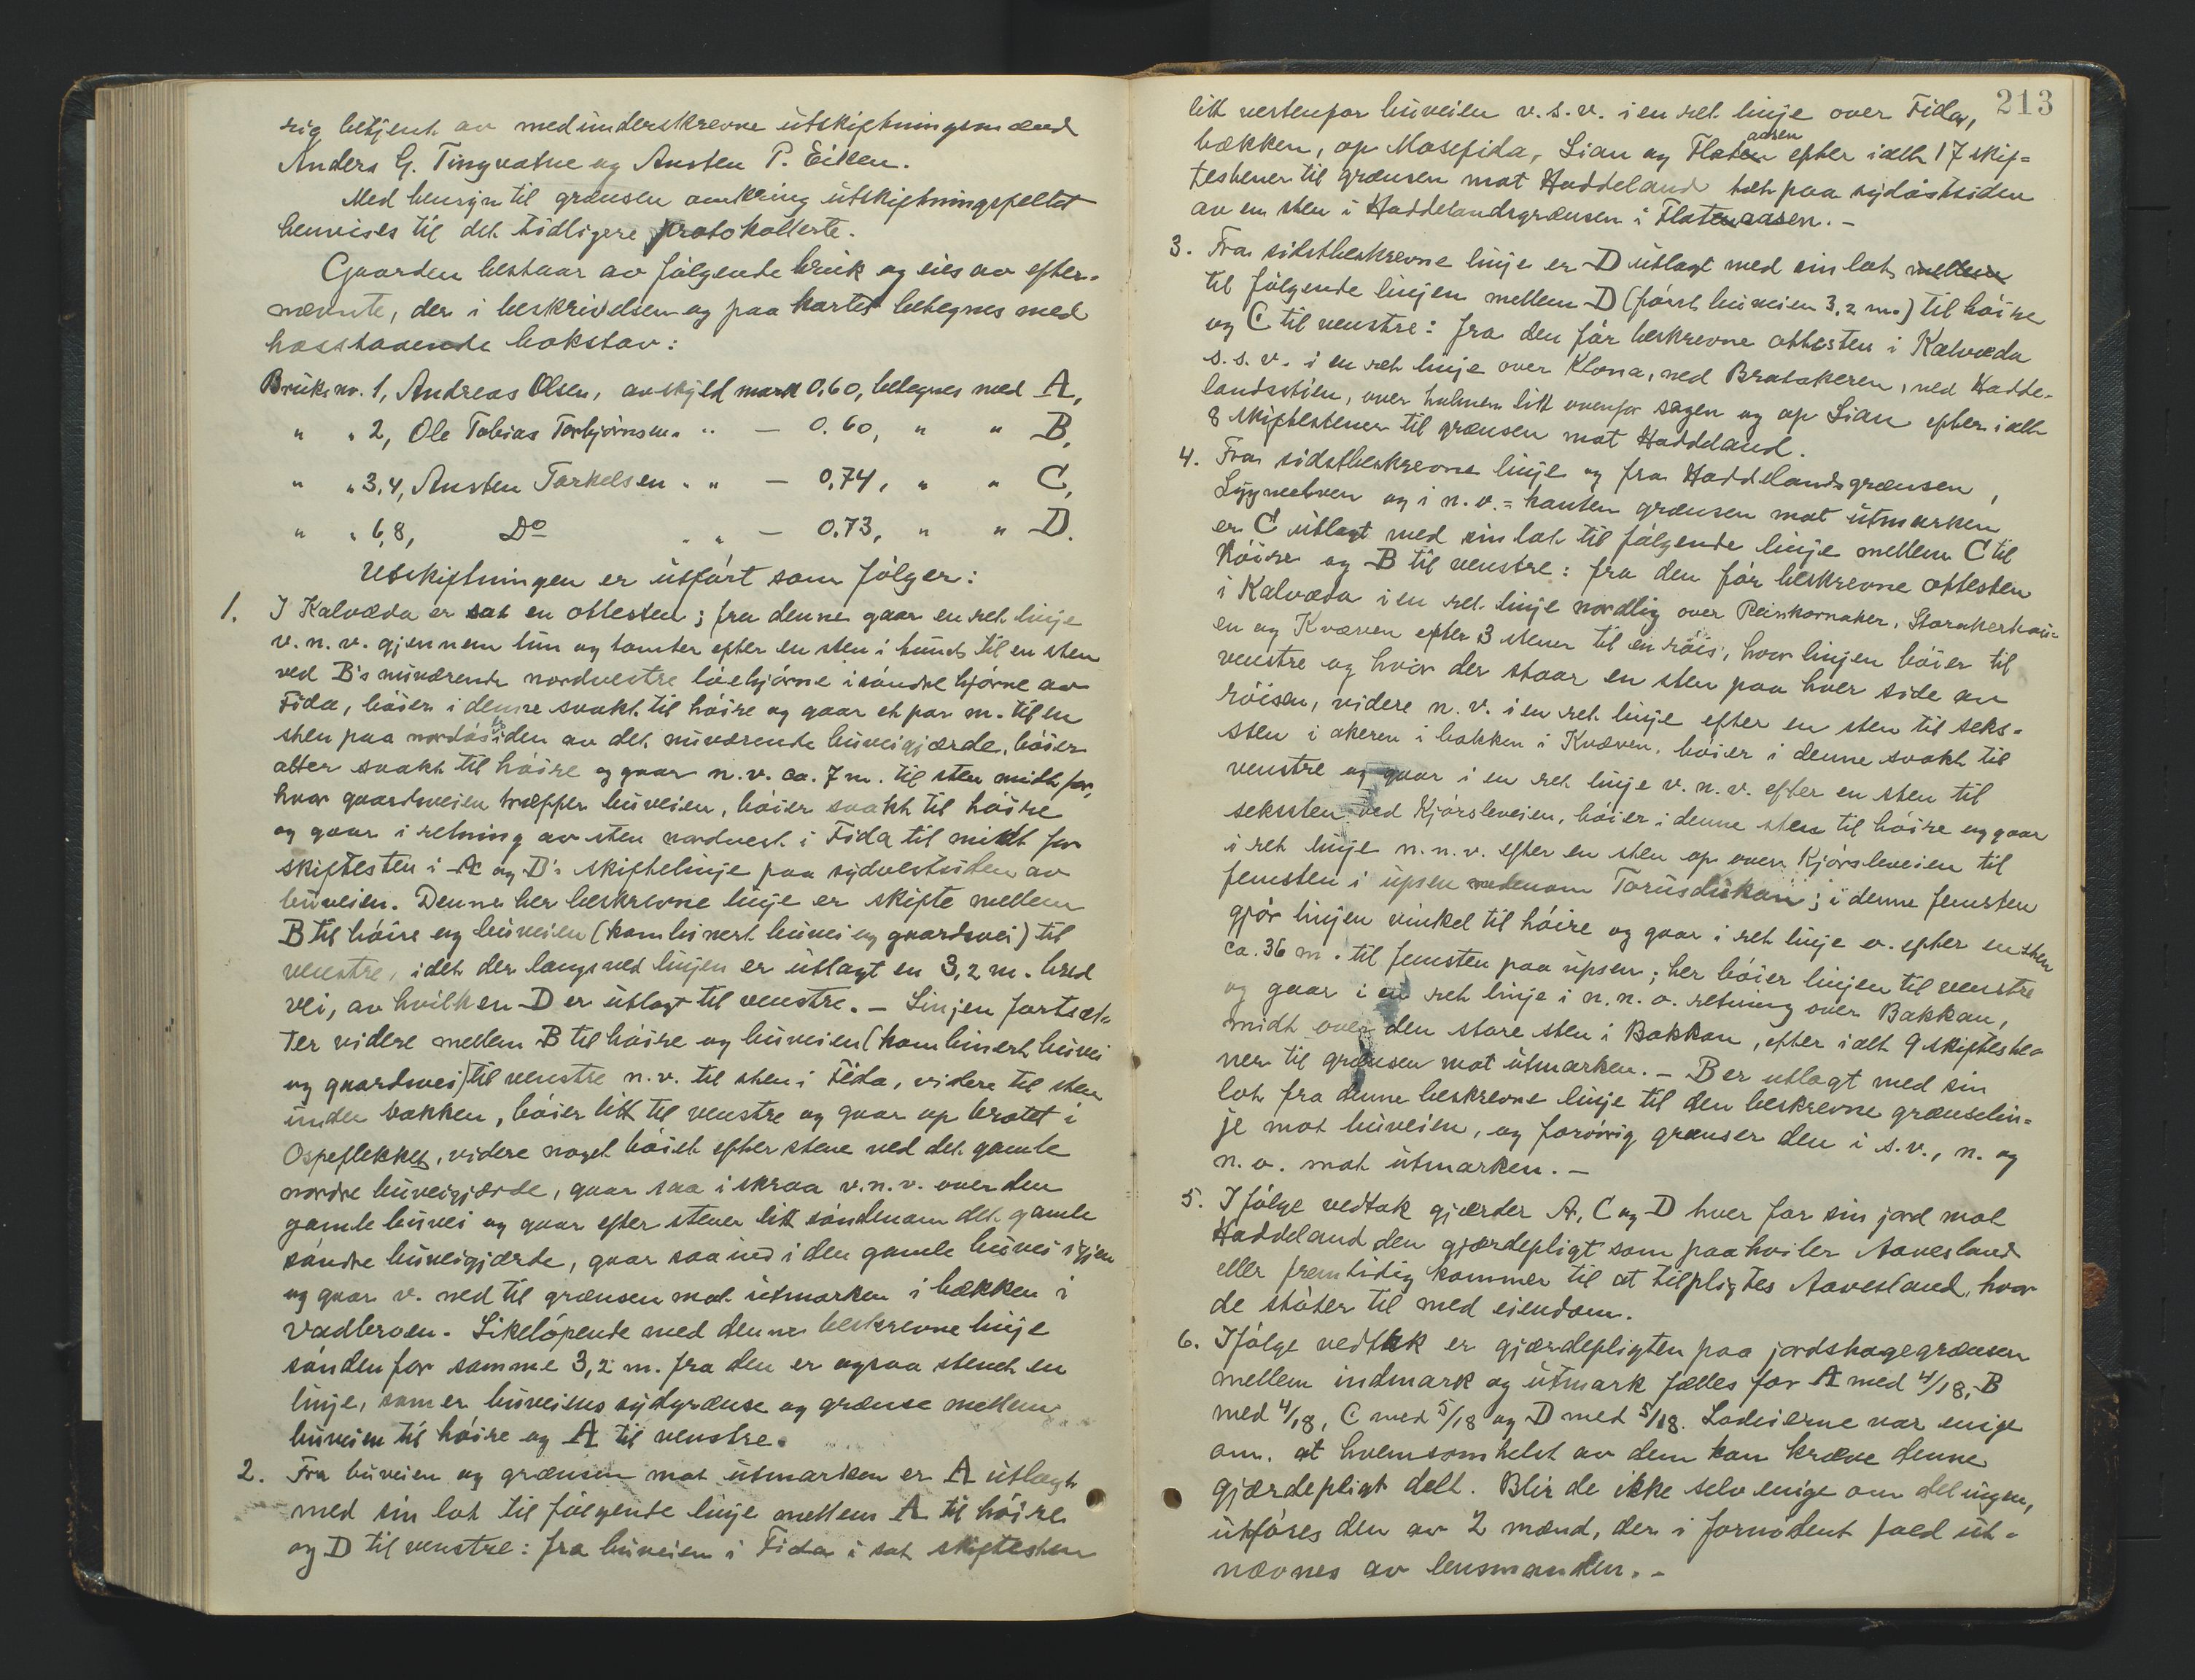 sig betjent av medunderskrevne utskiftningsmænd
Anders G. Tingvatne og Austen P. Eiken.
Med hensyn til grænsen omkring utskiftningsfeltet
henvises til det tidligere protokollerte.
Gaarden bestaar av følgende bruk og eies av efter-
nævnte, der i beskrivelsen og paa kartet betegnes med
hosstaaende bokstav:
Bruks nr. 1, Andreas Olsen, av skyld mark 0.60, betegnes med A,
" " 2, Ole Tobias Torbjørnsen " " — 0.60, " " B,
" " 3,4, Austen Torkelsen " " — 0,74, " " C,
" " 6,8, Do " " — 0.73, " " D.
Utskiftningen er utført som følger:
1. I Kalvæda er sat en ottesten; fra denne gaar en ret linje
v. n. v. gjennem tun og tomter efter en sten i tunet til en sten
ved B's nuværende nordvestre løehjørne i søndre hjørne av
Fida, bøier i denne svakt til høire og gaar et par m. til en
sten paa nordøstsiden av det nuværende buveigjærde, bøier
atter svakt til høire og gaar n. v. ca. 7 m. til sten midt for,
hvor gaardsveien træffer buveien, bøier svakt til høire
og gaar i retning av sten nordvest i Fida til midt for
skiftesten i A og D's skiftelinje paa sydvestsiden av
buveien. Denne her beskrevne linje er skifte mellem
B til høire og buveien (kombinert buvei og gaardsvei) til
venstre, idet der langs ved linjen er utlagt en 3,2 m. bred
vei, av hvilken D er utlagt til venstre. — Linjen fortsæt-
ter videre mellem B til høire og buveien (kombinert buvei
og gaardsvei) til venstre n. v. til sten i Fida, videre til sten
under bakken, bøier litt til venstre og gaar op brotet i
Ospeflekket, videre noget bøiet efter stene ved det gamle
nordre buveigjærde, gaar saa i skraa v. n. v. over den
gamle buvei og gaar efter stener litt søndenom det gamle
søndre buveigjærde, gaar saa ind i den gamle buvei igjen
og gaar v. ned til grænsen mot utmarken i bækken i
Vadbroen. Likeløpende med denne beskrevne linje
søndenfor samme 3,2 m. fra den er ogsaa stenet en
linje, som er buveiens sydgrænse og grænse mellem
buveien til høire og A til venstre.
2. Fra buveien og grænsen mot utmarken er A utlagt
med sin lot til følgende linje mellem A til høire
og D til venstre: fra buveien i Fida i sat skiftesten
213
litt vestenfor buveien v. s. v. i en ret linje over Fida,
aasen
bækken, op Mosefida, Lian og Flaten efter ialt 17 skif-
testener til grænsen mot Haddeland tæt paa sydøstsiden
av en sten i Haddelandsgrænsen i Flatenaasen. —
3. Fra sidstbeskrevne linje er D utlagt med sin lot mellem
til følgende linjen mellem D (først buveien 3,2 m.) til høire
og C til venstre: fra den før beskrevne ottesten i Kalvæda
s. s. v. i en ret linje over Klona, ned Bratakeren, ned Hadde-
landsstien, over holmen litt ovenfor sagen og op Lian efter ialt
8 skiftestener til grænsen mot Haddeland.
4. Fra sidstbeskrevne linje og fra Haddelandsgrænsen,
Lygneelven og i n. v.-kanten grænsen mot utmarken
er C utlagt med sin lot til følgende linje mellem C til
høire og B til venstre: fra den før beskrevne ottesten
i Kalvæda i en ret linje nordlig over Reinkornaker, Storakerhau-
en og Kvæven efter 3 stener til en røis, hvor linjen bøier til
venstre og hvor der staar en sten paa hver side av
røisen, videre n. v. i en ret linje efter en sten til seks-
sten i akeren i bakken i Kvæven, bøier i denne svakt til
venstre og gaar i en ret linje v. n. v. efter en sten til
seksten ved Kjørsleveien, bøier i denne sten til høire og gaar
i ret linje n. n. v. efter en sten op over Kjørsleveien til
femsten i upsen nedenom Torusdiskaui; i denne femsten
gjør linjen vinkel til høire og gaar i ret linje ø. efter en sten
ca. 36 m. til femsten paa upsen; her bøier linjen til venstre
og gaar i en ret linje i n. n. ø. retning over Bakkan,
midt over den store sten i Bakkan, efter ialt 9 skifteste-
ner til grænsen mot utmarken. — B er utlagt med sin
lot fra denne beskrevne linje til den beskrevne grænselin-
je mot buveien, og forøvrig grænser den i s. v., n. og
n. ø. mot utmarken. —
5. Ifølge vedtak gjærder A, C og D hver for sin jord mot
Haddeland den gjærdepligt som paahviler Aavesland
eller fremtidig kommer til at tilpligtes Aavesland, hvor
de støter til med eiendom.
6. Ifølge vedtak er gjærdepligten paa jordshagegrænsen
mellem indmark og utmark fælles for A med 4/18, B
med 4/18, C med 5/18 og D med 5/18. Lodeierne var enige
om, at hvemsomhelst av dem kan kræve denne
gjærdepligt delt. Blir de ikke selv enige om delingen,
utføres den av 2 mænd, der i fornødent fald ut-
nævnes av lensmanden. -